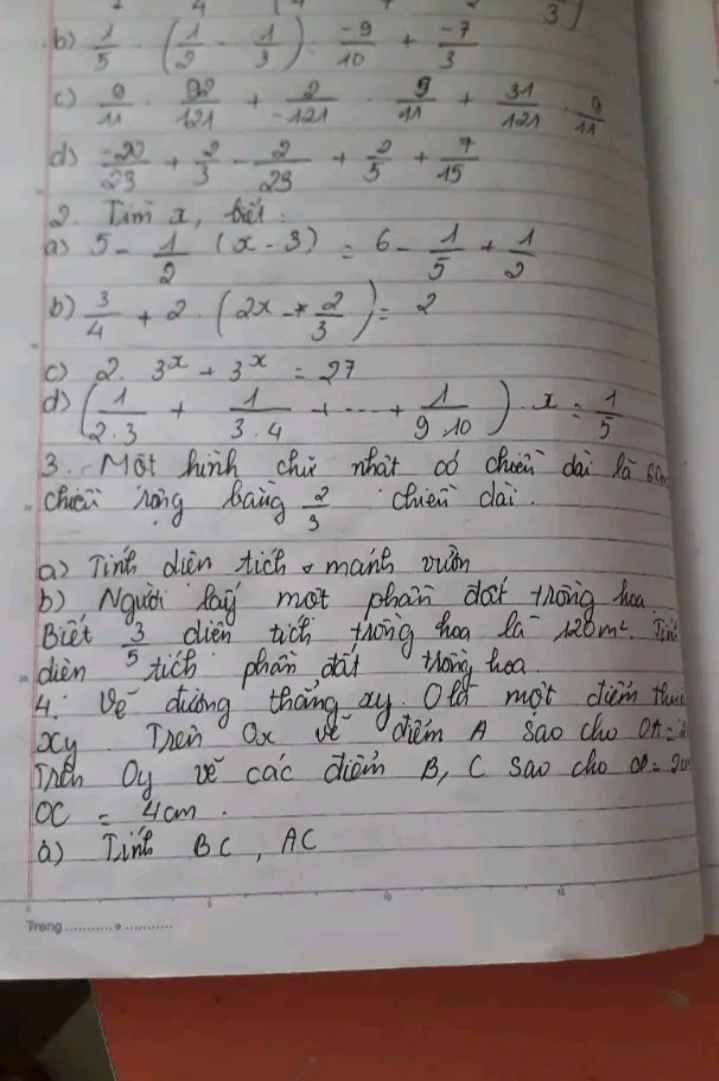 b) 1/5 · (1/2 - 1/3) · -9/10 + -7/3
c) 9/11 · 92/121 + 2/-121 · 9/11 + 31/121 · 9/11
d) -20/23 + 2/3 - 2/23 + 2/5 + 7/15
2. Tìm x, biết:
a) 5 - 1/2 (x - 3) = 6 - 1/5 + 1/2
b) 3/4 + 2 · (2x - 2/3) = 2
c) 2. 3^x + 3^x = 27
d) (1/2.3 + 1/3.4 + ... + 1/9.10) · x = 1/5
3. Một hình chữ nhật có chiều dài là
chiều rộng bằng 2/3 chiều dài.
a) Tính diện tích mảnh vườn
b) Người lấy một phần đất trồng hoa
Biết 3/5 diện tích trồng hoa là 120m². Tính
diện tích phần đất trồng hoa.
4. Vẽ đường thẳng xy. O là một điểm thuộc
xy. Trên Ox vẽ điểm A sao cho OA =
Trên Oy vẽ các điểm B, C sao cho
OC = 4cm.
a) Tính BC, AC
Trang